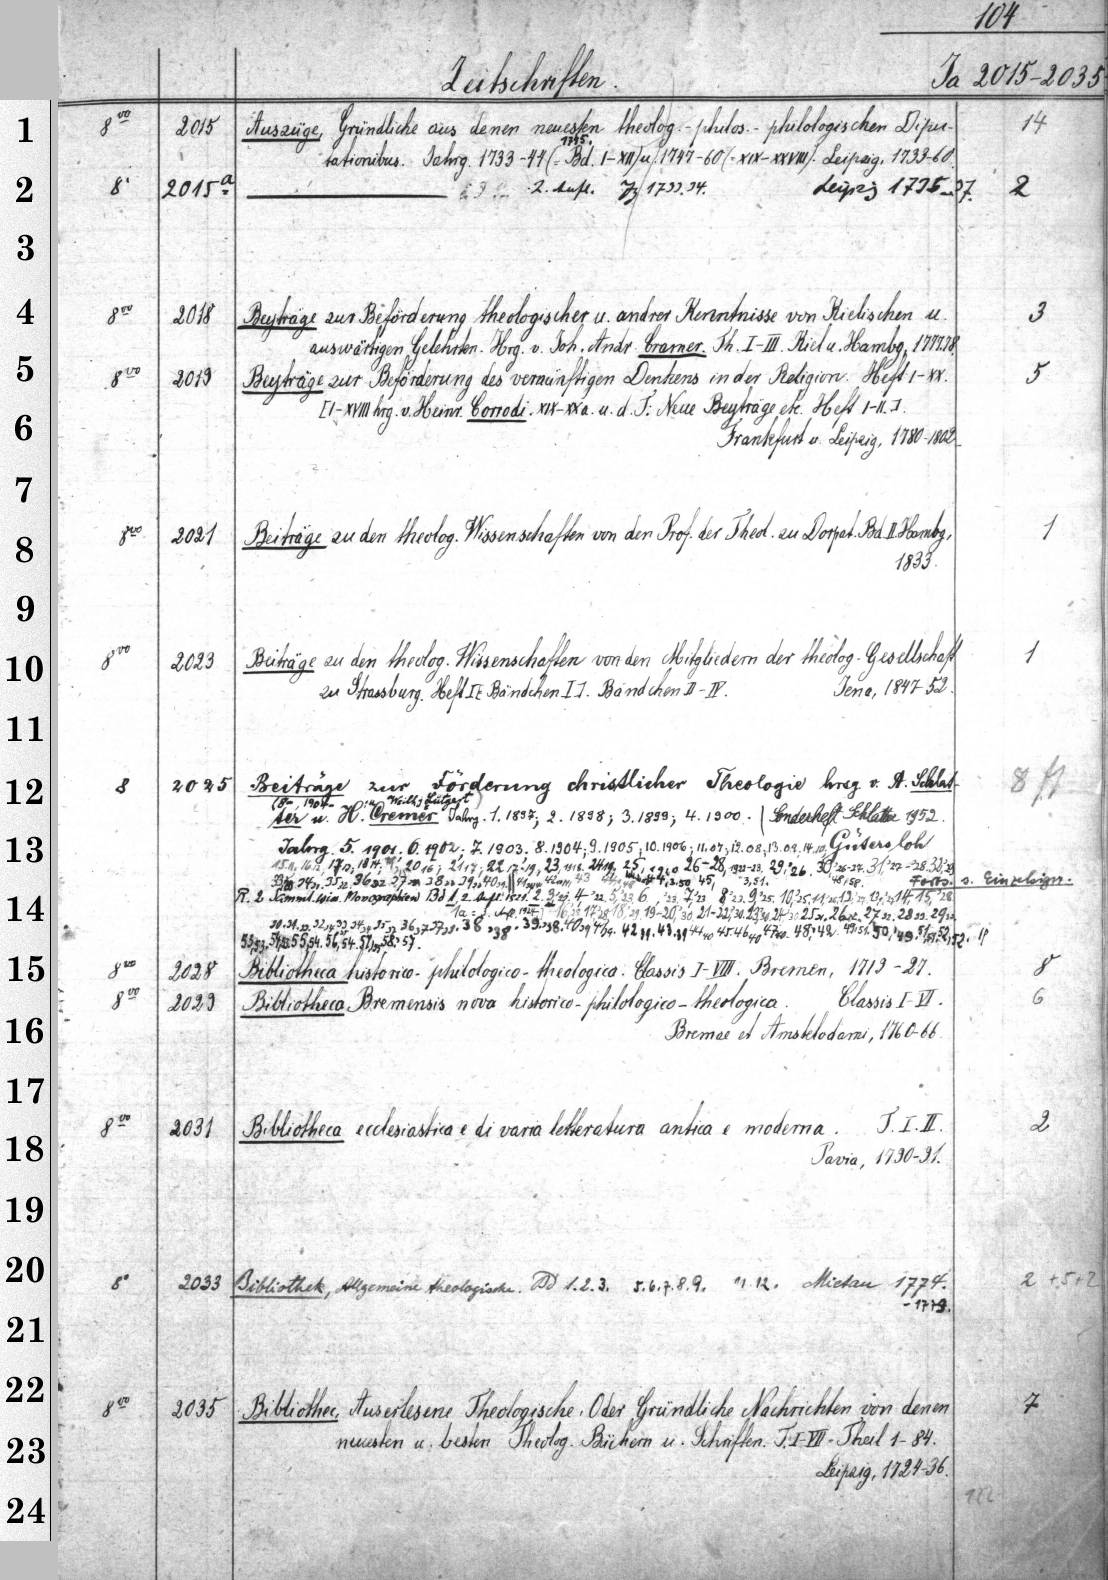 104
Zeitschriften. Ja 2015-2035
1 8vo 2015 Auszüge, Gründliche aus denen neuesten theolog.-philos.-philologischen Dispu- 14
tationibus. Jahrg. 1733-44 (=Bd. I-XII) u. 1747-60 (=XIX-XXVIII) Leipzig, 1733-60.
2 8° 2015a 2. Aufl. Jg 1733.34. Leipzig 1735 u. 37. 2
3
4 8vo 2018 Beyträge zur Beförderung theologischer u. andrer Kenntnisse von Kielischen u. 3
auswärtigen Gelehrten. Hrg. v. Joh. Andr. Cramer. Th. I-III. Kiel u. Hambg, 1777.78
5 8vo 2019 Beyträge zur Beförderung des vernünftigen Denkens in der Religion. Heft I-XX. 5
[I-XVIII hrg. v. Heinr. Corrodi. XIX-XX a. u. d. T: Neue Beyträge etc. Heft I-II.].
6 Frankfurt u. Leipzig, 1780-1802
7
8 8vo 2021 Beiträge zu den theolog. Wissenschaften von den Prof. der Theol. zu Dorpat. Bd II. Hambg, 1
1833.
9
10 8vo 2023 Beiträge zu den theolog. Wissenschaften von den Mitgliedern der theolog. Gesellschaft 1
zu Strassburg. Heft I [: Bändchen I]. Bändchen II-IV. Jena, 1847-52.
11
12 8 2025 Beiträge zur Förderung christlicher Theologie hrsg v. A. Schlat- 8 ff
ter u. H. Cremer Jahrg. 1. 1897; 2. 1898; 3. 1899; 4. 1900. Sonderheft Schlatter 1952.
13 Jahrg. 5. 1901. 6. 1902. 7. 1903. 8. 1904; 9. 1905; 10. 1906; 11. 07; 12. 08; 13. 09. 14. 10. Gütersloh
Forts. s. Einzelsign.
14 R. 2 Samml. wiss. Monographien Bd 1, 2. Aufl.
15 8vo 2028 Bibliotheca historico-philologico-theologica. Classis I-VIII. Bremen, 1719-27. 8
8vo 2029 Bibliotheca Bremensis nova historico-philologico-theologica. Classis I-VI. 6
16 Bremae et Amstelodami, 1760-66.
17
18 8vo 2031 Bibliotheca ecclesiastica e di varia letteratura antica e moderna. T. I. II. 2
Pavia, 1790-91.
19
20 8° 2033 Bibliothek, Allgemeine theologische. Bd 1. 2. 3. 5. 6. 7. 8. 9. 11. 12. Mietau 1774. 2 +5+2
-1779.
21
22 8vo 2035 Bibliothec, Auserlesene Theologische. Oder Gründliche Nachrichten von denen 7
23 neuesten u. besten Theolog. Büchern u. Schriften. T. I-VII = Theil 1-84.
Leipzig, 1724-36.
24